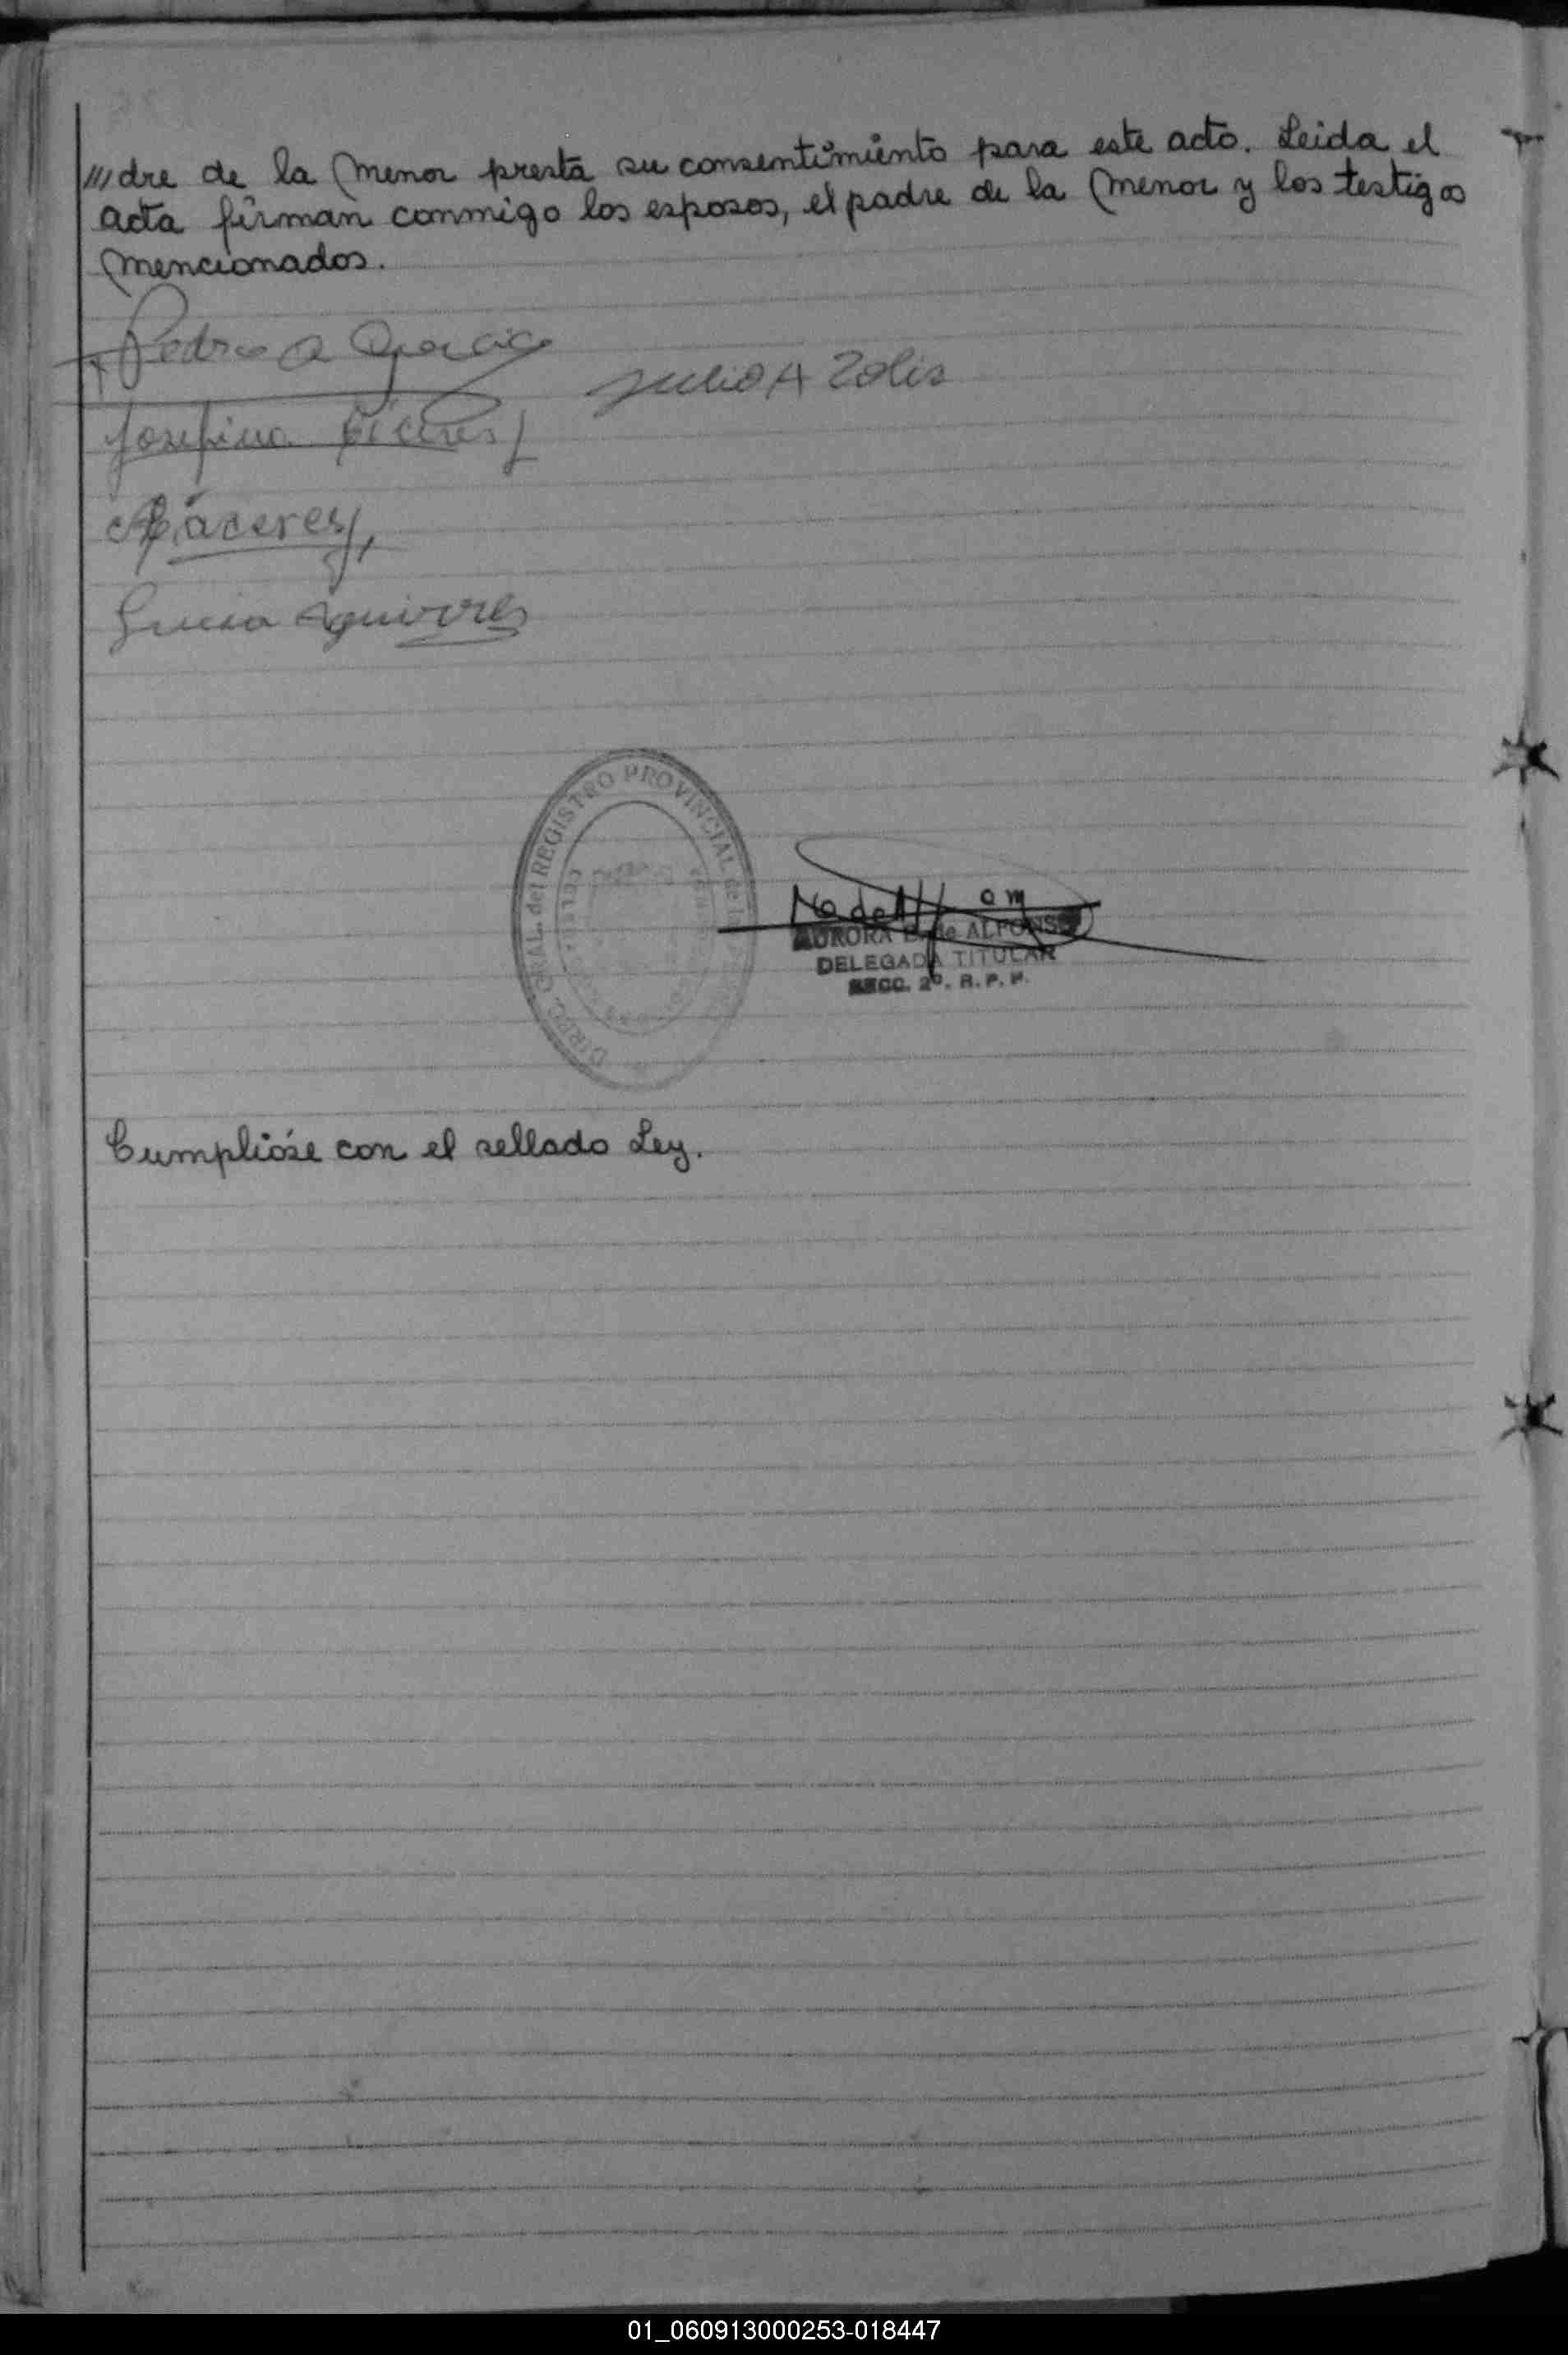 ///dre de la Menor presta su consentimiento para este acto. Leida el
acta firman conmigo los esposos, el padre de la Menor y los testigos
Mencionados.
Pedro A Garcia
Julio A Zolis
Josefina Cáceres
Cáceres
Lucia Aguirres
DIREC. GRAL. del REGISTRO PROVINCIAL de las
AURORA E. de ALFONSO
DELEGADA TITULAR
SECC. 2º. R. P. P.
Cumplióse con el sellado Ley.
01_060913000253-018447